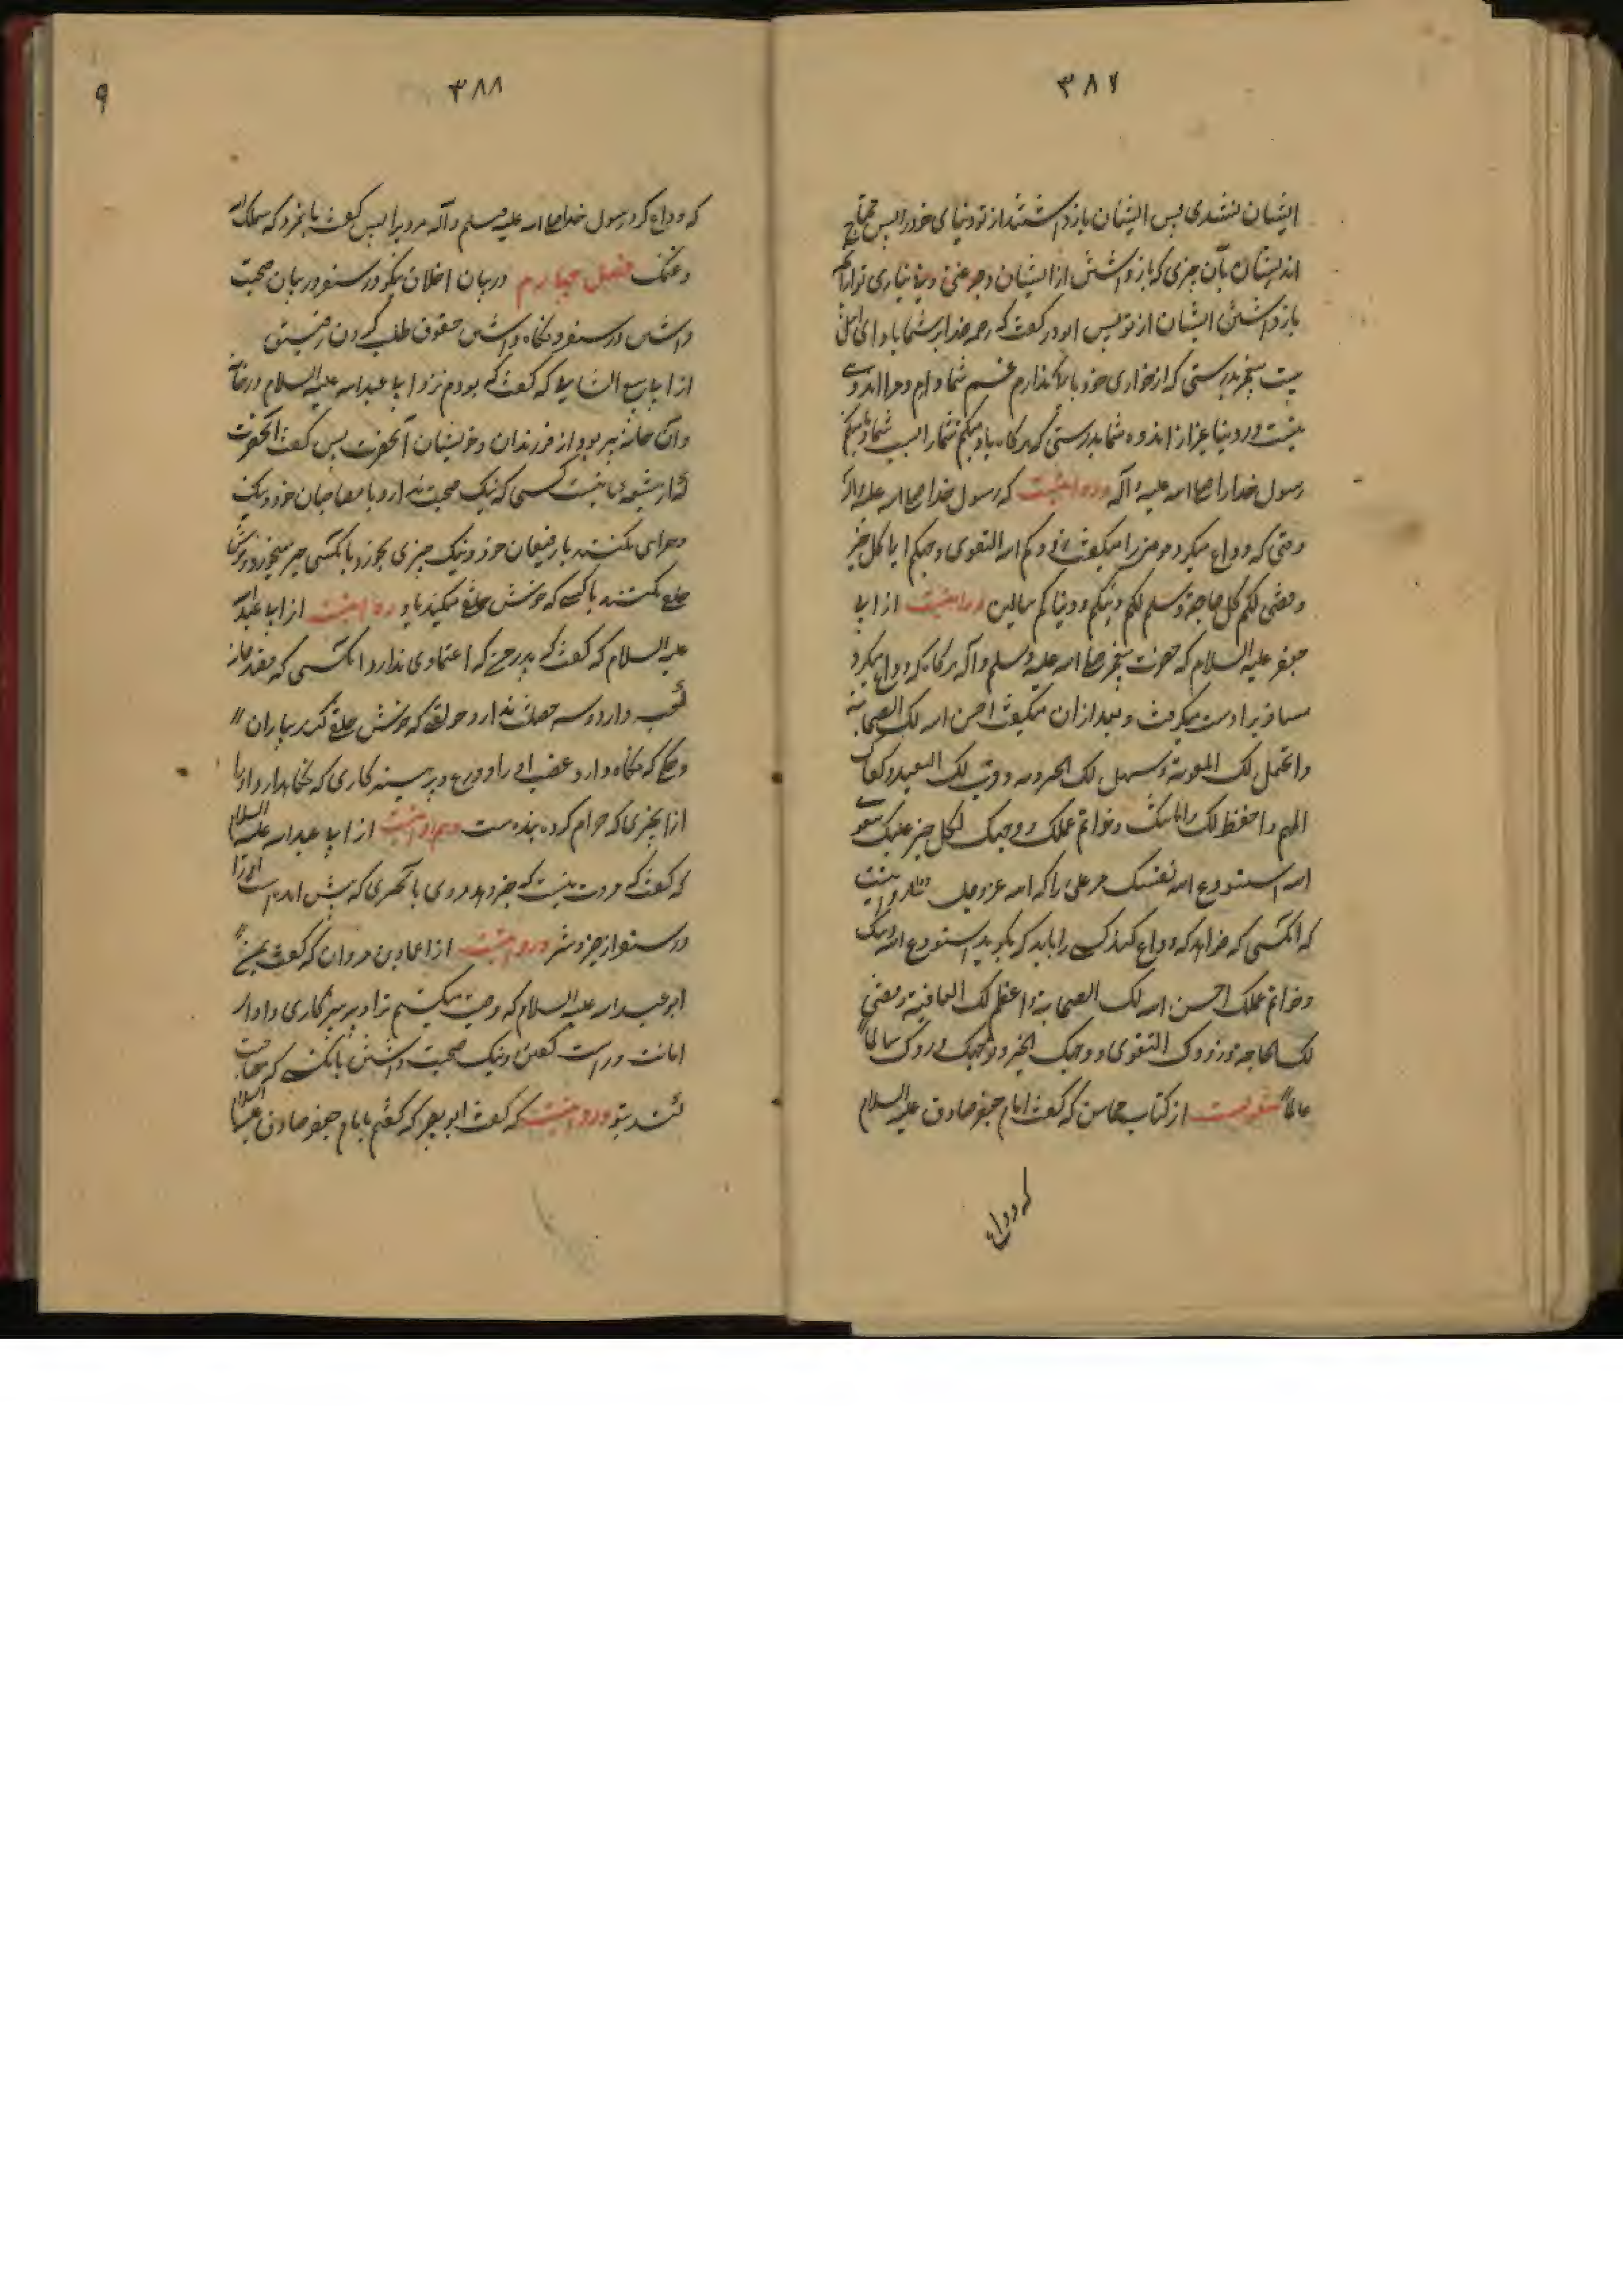 ۳۸۷
ایشان نشدی پس ایشان بازداشتند از تو دنیای خود را پس محتاج
اند ایشان بآن چیزی که بازداشتی از ایشان و چه غنی و بی نیازی تو از آنچه
بازداشتن ایشان از تو پس ابوذر گفت که رحمه خدا بر شما باد ای اهل
بیت بدرستی که از شما و ام و مرا اندوهی
نیست در دنیا غیر از اندوه شما بدرستی که هرگاه یاد میکنم شما را یاد میکنم
رسول خدا را صلی الله علیه و آله و روایتست که رسول خدا صلی الله علیه و آله
وقتی که وداع میکرد مومنین را میگفت زودکم الله التقوی و وجهکم الی کل خیر
و قضی لکم کل حاجة و سلم لکم دینکم و دنیاکم سالمین و روایتست از ابی
جعفر علیه السلام که حضرت پیغمبر صلی الله علیه وسلم و آله هرگاه که وداع میکرد
مسافر را دست میگرفت و بعد از آن میگفت احسن الله لک الصحابة
و اکمل لک المعونة و سهل لک الحزونه و قرب لک البعید و کفاک
المهم و احفظ لک دینک و امانتک و خواتم عملک و وجهک لکل خیر علیک بتقوی
الله استودع الله نفسک سر علی برکة الله عز وجل و روایتست
که آنکسی که خواهد که وداع کند کسی را باید که بگوید استودع الله دینک
و خواتم عملک احسن الله لک الصحابة و اعظم لک العافیة و قضی
لک الحاجة و زودک التقوی و وجهک الخیر و وردک سالما
غانما منقولست از کتاب محاسن که گفت امام جعفر صادق علیه السلام
که وداع
۳۸۸
۹
که وداع کرد رسول خدا صلی الله علیه وسلم و آله مردی را پس گفت با مرد که سلمک الله
و غنمک فصل چهارم در بیان اخلاق نیکو در سفر و در بیان صحبت
داشتن در سفر و نگاه داشتن حقوق طلب کردن رفیق
از ابی ربیع الشامی که گفت که بودم نزد ابی عبدالله علیه السلام در خانه
و آن خانه پر بود از فرزندان و خویشان آنحضرت پس گفت آنحضرت
که از شیعه ما نیست کسی که نیک صحبت ندارد با مصاحبان خود و نیک
همراهی نکند با رفیقان خود و نیک چیزی نخورد با کسی چیز میخورد و خوش
خلقی نکند با کسی که خوش خلقی میکند با او و روایتست از ابی عبدالله
علیه السلام که گفت که پدرم که اعتمادی ندارد آنکسی که قصد خانه
کعبه دارد و سه خصلت ندارد خلقی که خوش خلقی کند با یاران
و حلمی که نگاه دارد غضب او را و ورع و پرهیزکاری که نگاهدارد او را
از چیزی که حرام کرده شده است و هم روایتست از ابی عبدالله علیه السلام
که گفت که مروت نیست که خبر دهد مردی با آنچیزی که پیش آمده است او را
در سفر از خیر و شر و روایتست از عمار بن مروان که گفت بمن
ابو عبدالله علیه السلام که وصیت میکنم ترا و پرهیزکاری و ادا
امانت و راست گفتن و نیک صحبت داشتن با کسی که صاحبت
کند بتو و روایتست که گفت ابو بصیر که گفتم با امام جعفر صادق علیه السلام